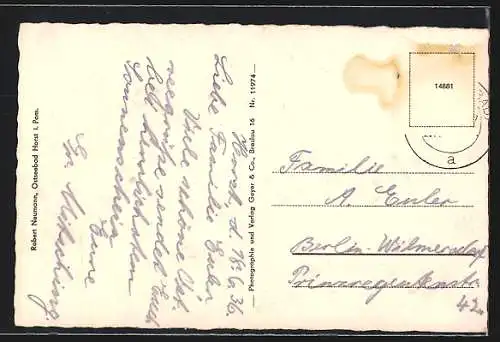 Horst d. 18.6.36.
Liebe Familie Euler,
Viele schöne Ost-
seegrüße sendet Euch
bei herrlichstem
Sonnenschein
Eure
Robert Neumann, Ostseebad Horst i. Pom.
Photographie und Verlag Geyer & Co., Breslau 16 Nr. 11974
14881
a
Familie
A. Euler
Berlin-Wilmersdorf
Prinzregentenstr.
42